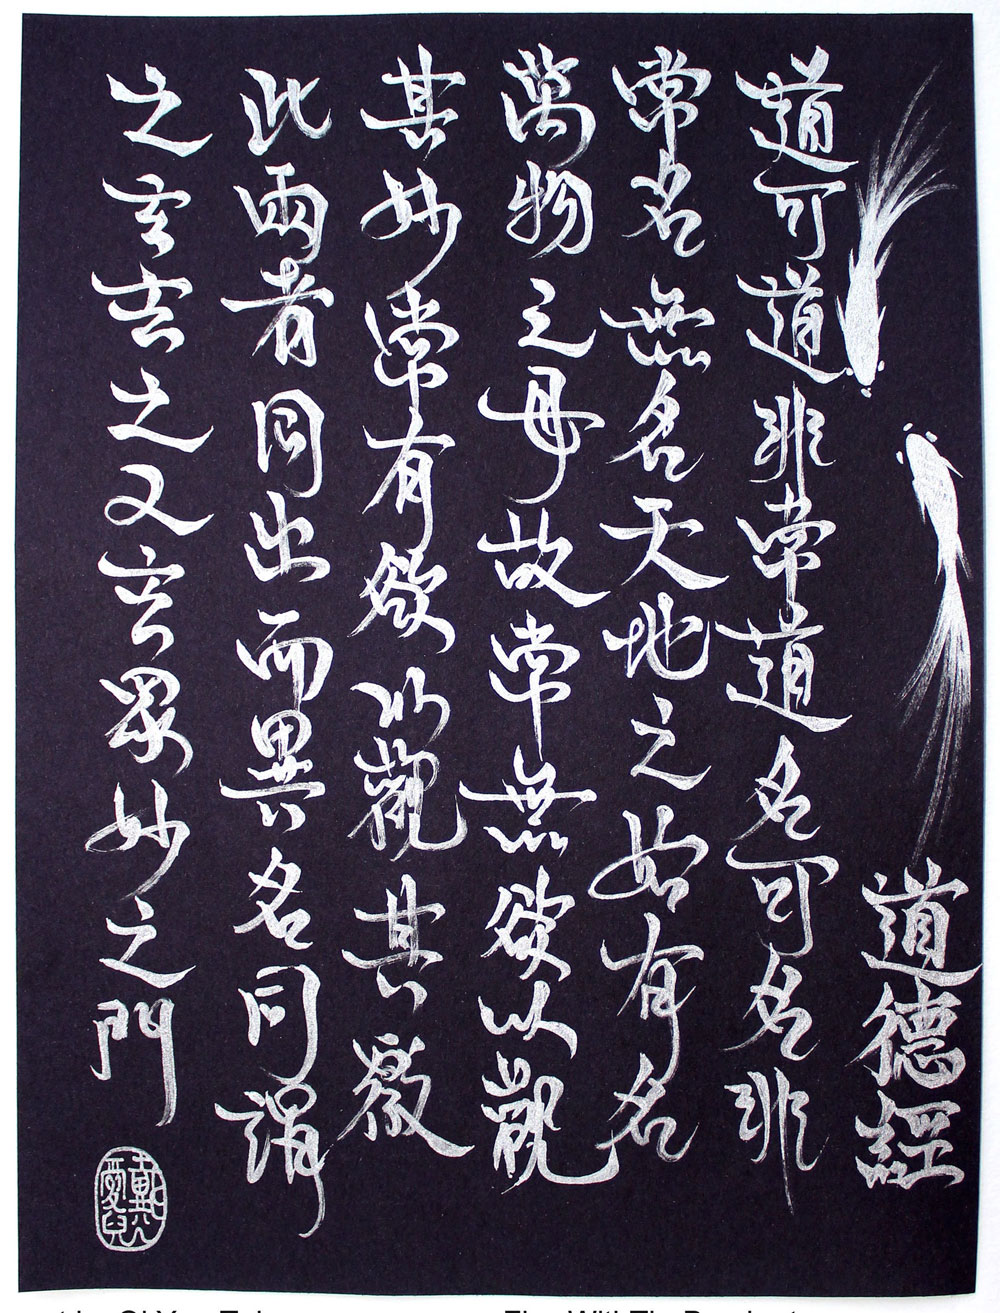 道德經
道可道非常道名可名非
常名無名天地之始有名
萬物之母故常無欲以觀
其妙常有欲以觀其徼
此兩者同出而異名同謂
之玄玄之又玄眾妙之門